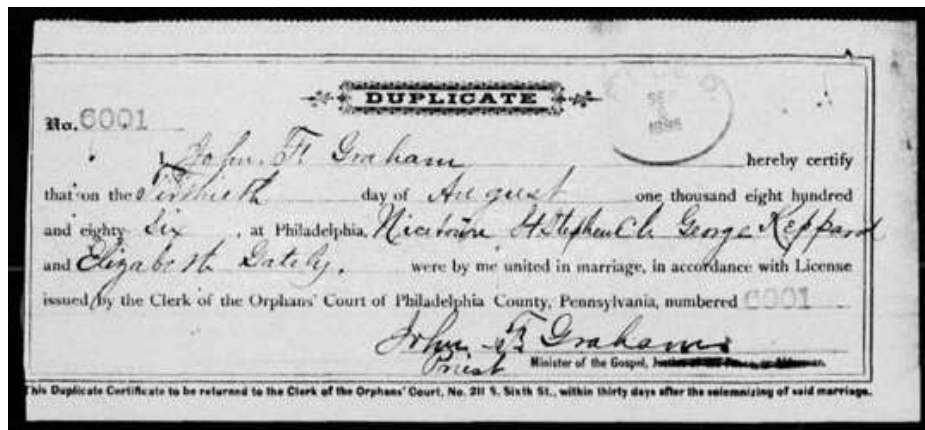 DUPLICATE
No. 6001
FILED
SEP
1886
I, John F. Graham hereby certify
that on the day of August one thousand eight hundred
and eighty Six, at Philadelphia, Nicetown St Stephen Ch George Keppard
and Elizabeth Gately. were by me united in marriage, in accordance with License
issued by the Clerk of the Orphans' Court of Philadelphia County, Pennsylvania, numbered 6001
John F. Graham
Priest Minister of the Gospel,
This Duplicate Certificate to be returned to the Clerk of the Orphans' Court, No. 211 S. Sixth St., within thirty days after the solemnizing of said marriage.